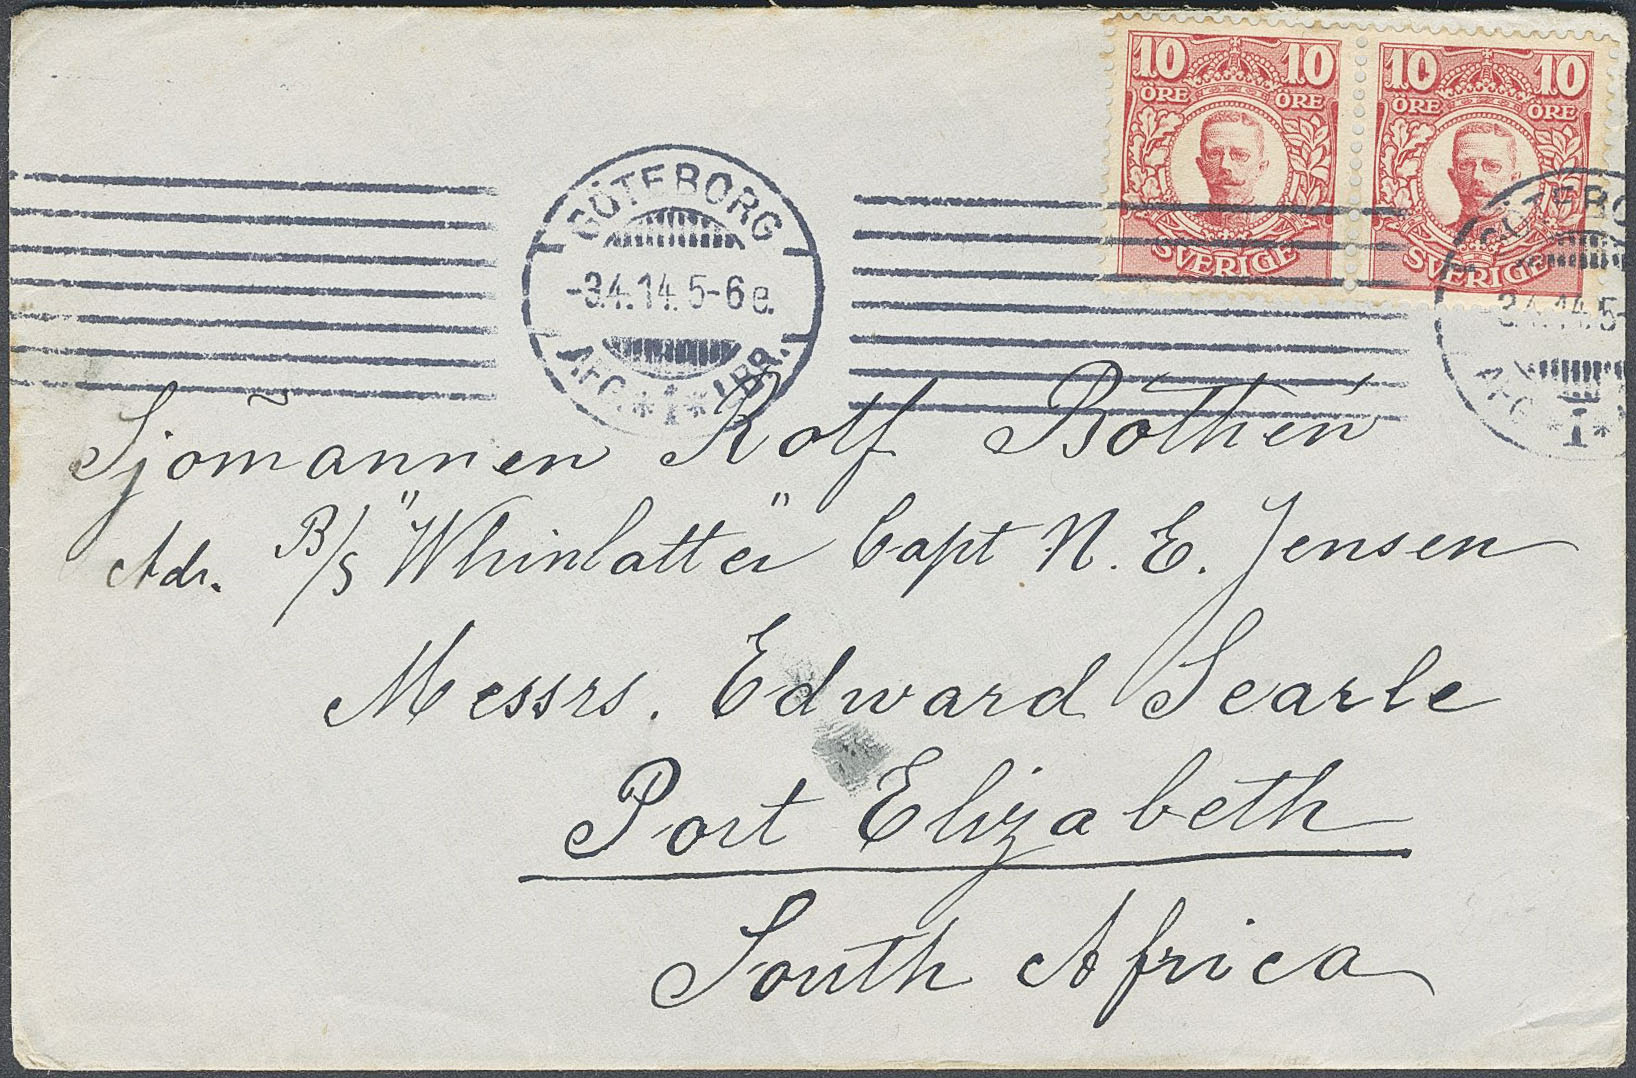 10 10
ÖRE ÖRE
SVERIGE
10 10
ÖRE ÖRE
SVERIGE
GÖTEBORG
-3.4.14. 5-6 e.
AFG. *1* UBR.
GÖTEBO
-3.4.14. 5-
AFG *1*
Sjömannen Rolf Bothén
Adr. B/S "Whinlatter" Capt N. E. Jensen
Messrs. Edward Searle
Port Elizabeth
South Africa